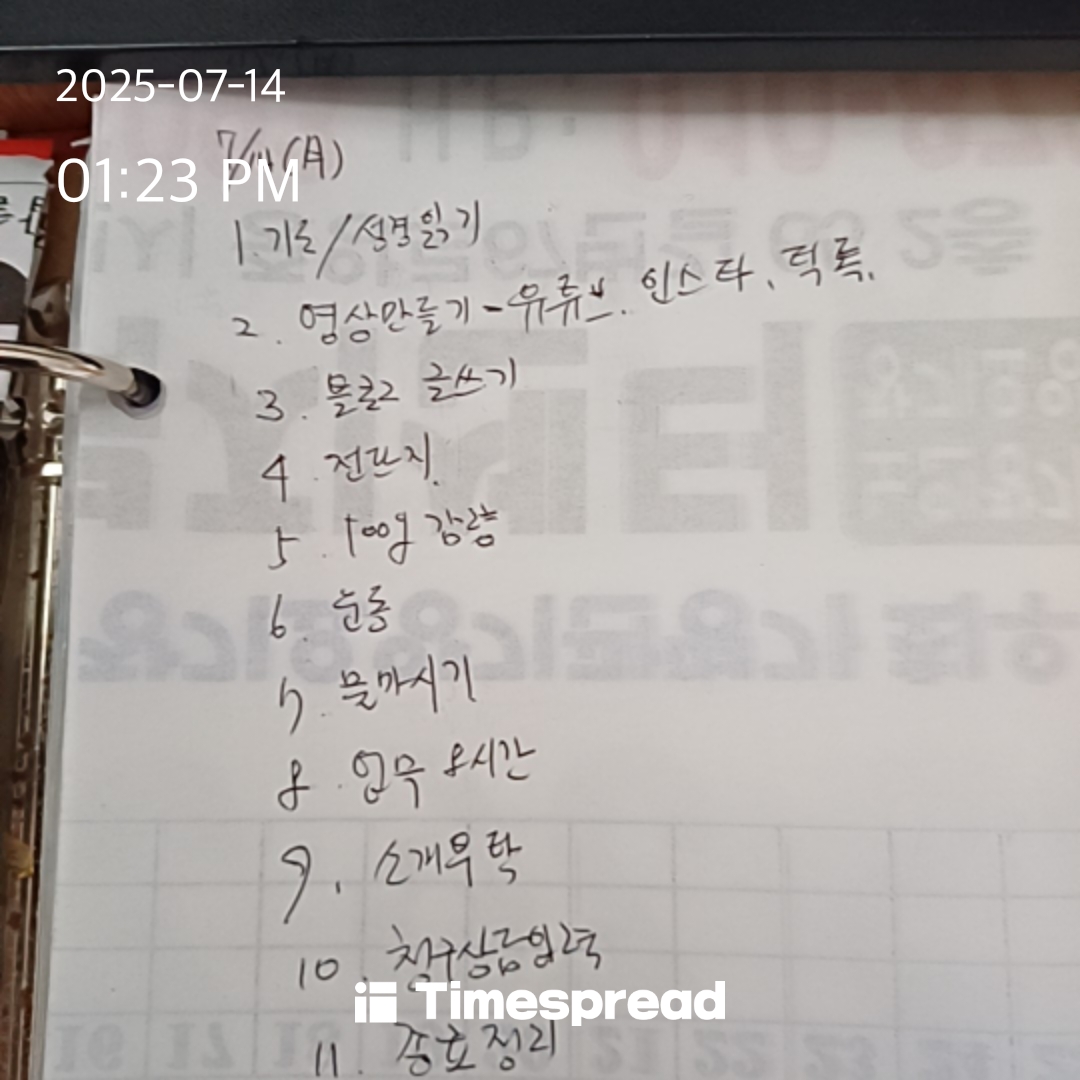 2025-07-14
7/14(月)
01:23 PM
1. 기도/성경읽기
2. 영상만들기-유튜브. 인스타, 틱톡.
3. 블로그 글쓰기
4. 전단지.
5. 100g 감량
6. 운동
7. 물마시기
8. 업무 8시간
9. 소개부탁
10. 청구상담입력
Timespread
11. 정리